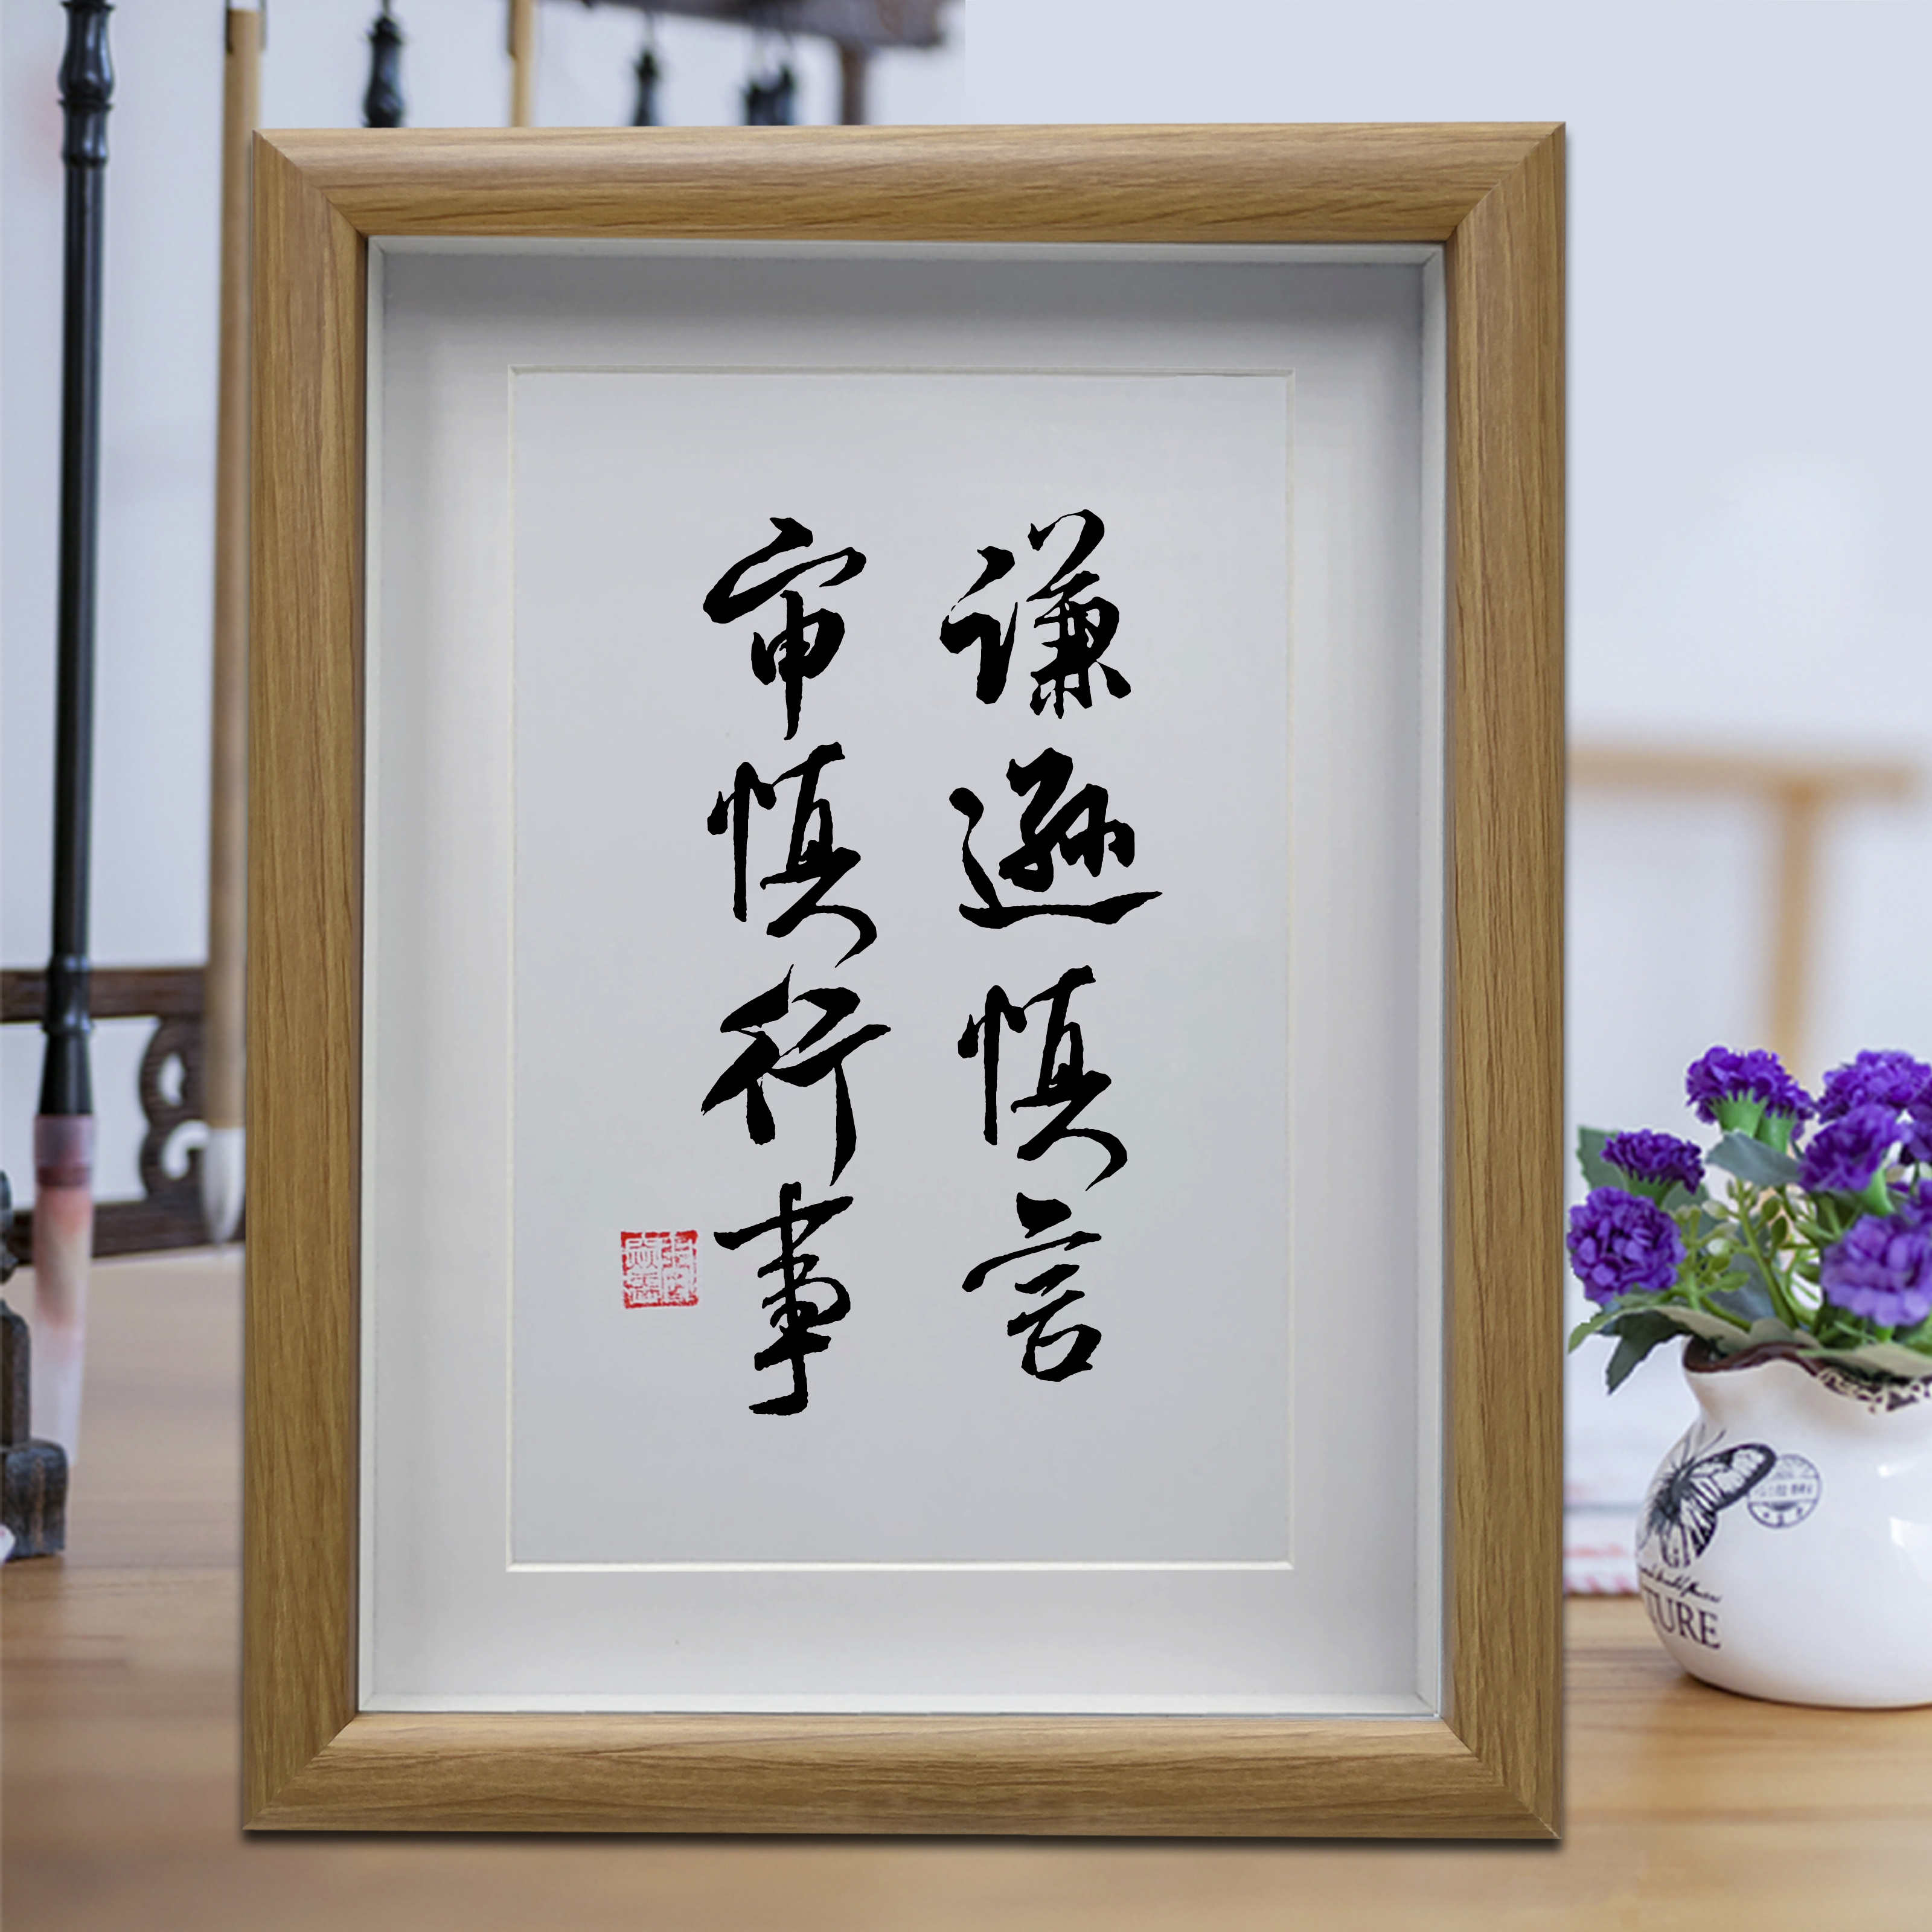 谦逊慎言
审慎行事
TURE